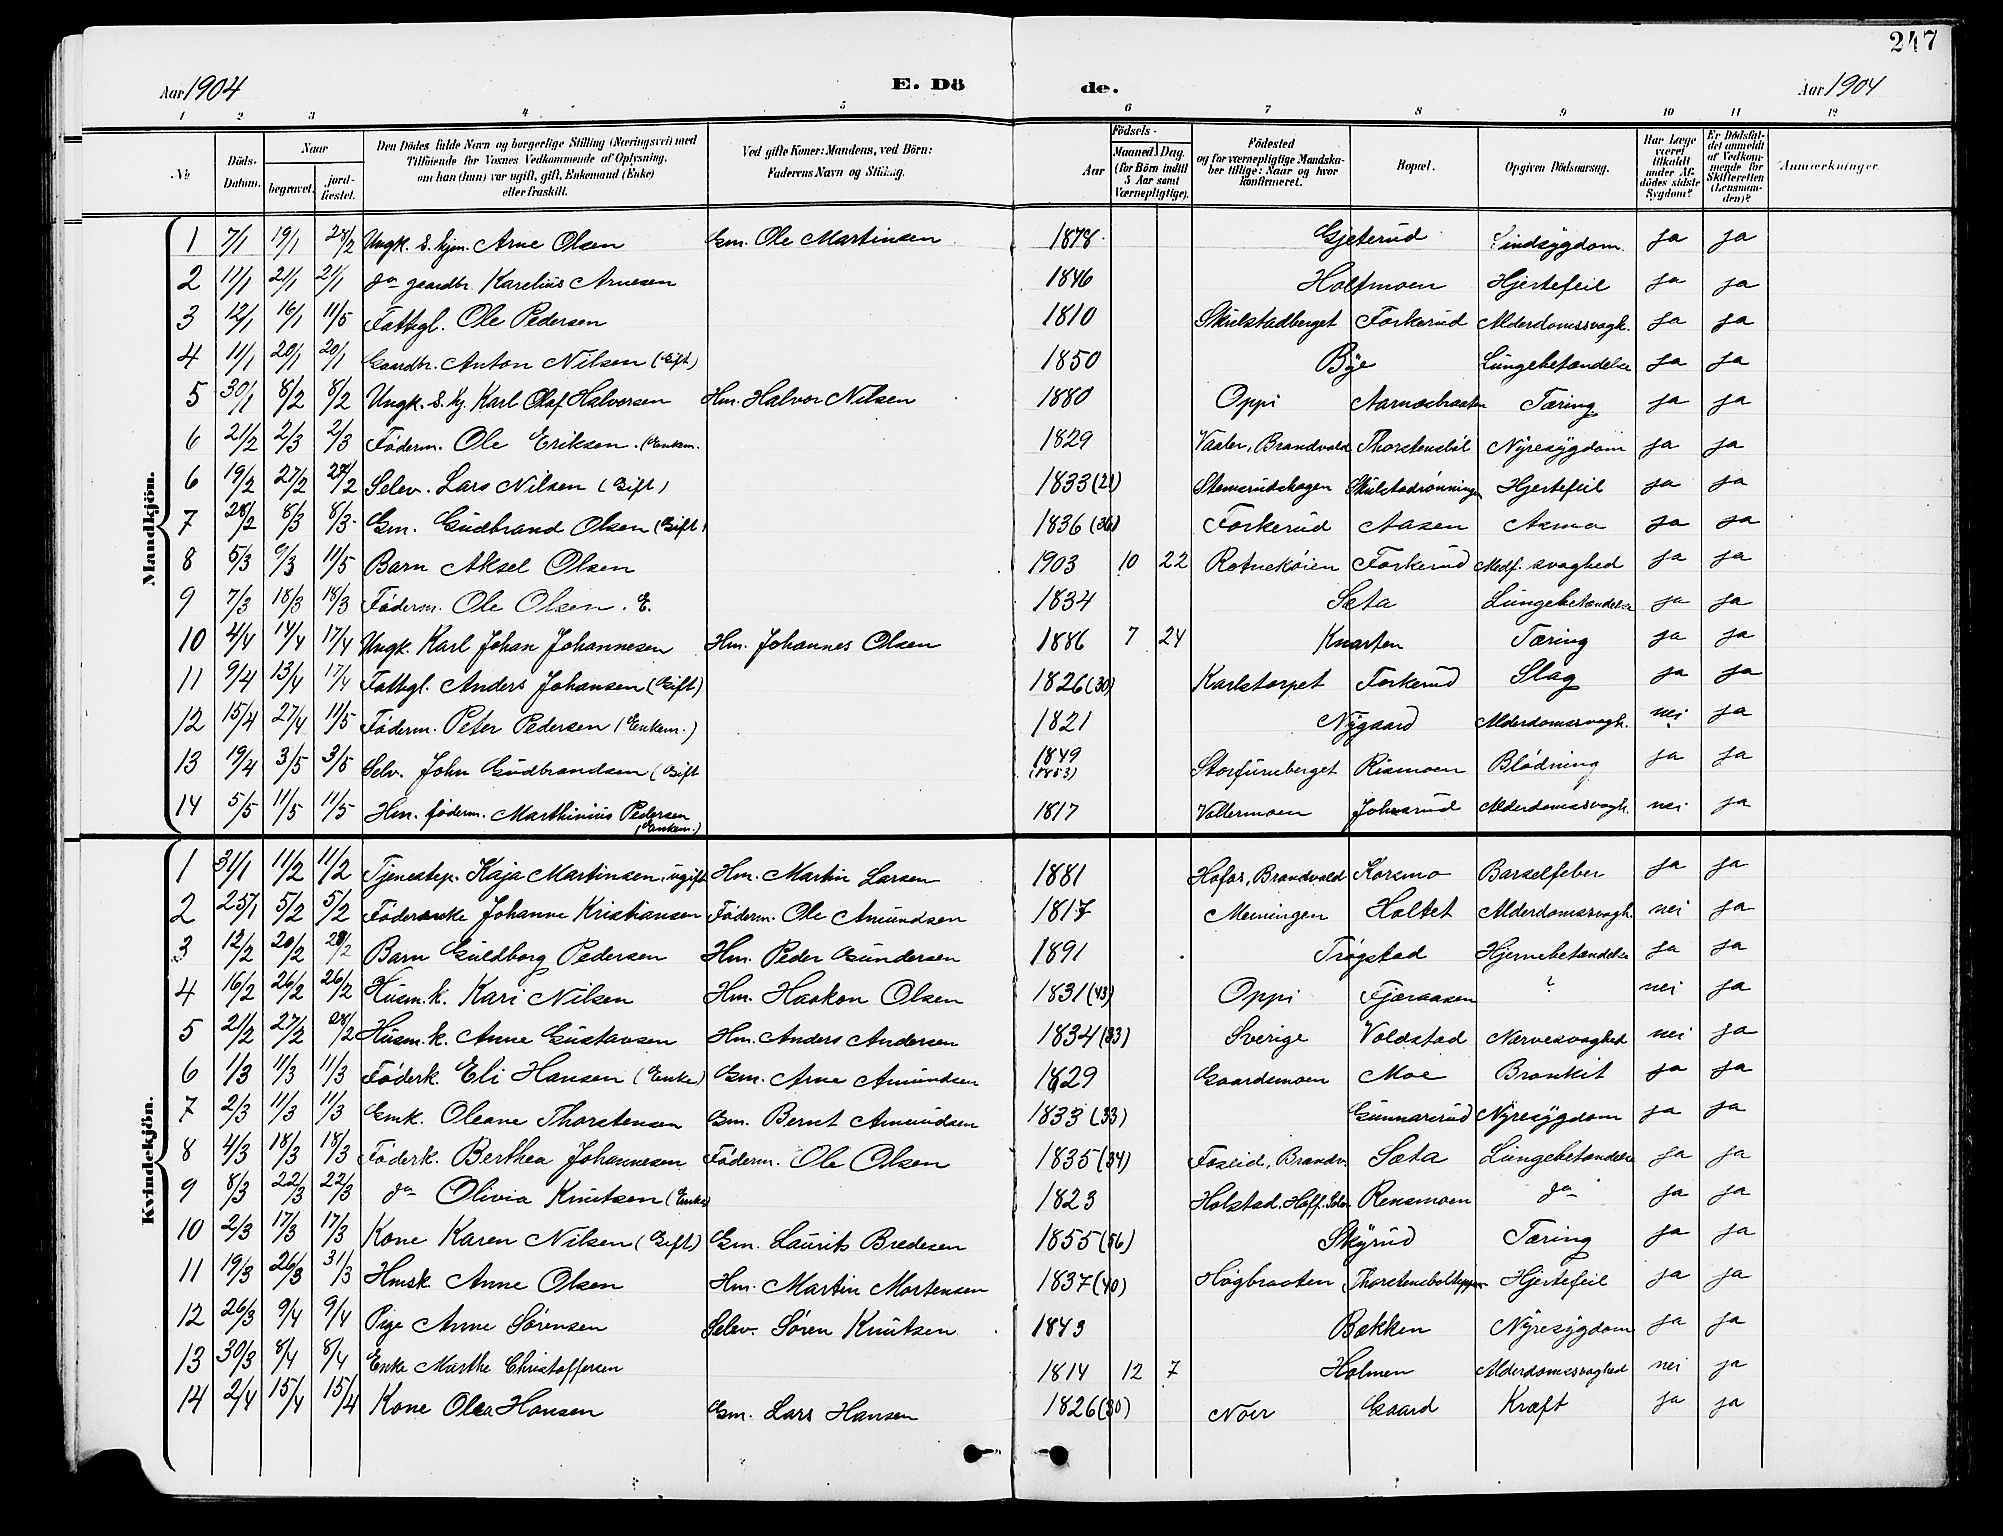 247
Aar 1904 E. Dö de. Aar 1904
1 2 3 4 5 6 7 8 9 10 11 12
№ Döds-Datum. Naar begravet. jord-fæstet. Den Dödes fulde Navn og borgerlige Stilling (Næringsvei) med Tilföiende for Voxnes Vedkommende af Oplysning, om han (hun) var ugift, gift, Enkemand (Enke) eller fraskilt. Ved gifte Koner: Mandens, ved Börn: Faderens Navn og Stilling. Födsels- Aar Maaned Dag. (for Börn indtil 5 Aar samt Værnepligtige). Födested og for værnepligtige Mandskaber tillige: Naar og hvor konfirmeret. Bopæl. Opgiven Dödsaarsag. Har Læge været tilkaldt under Afdödes sidste Sygdom? Er Dödsfaldet anmeldt af Vedkommende for Skifteretten (Lensmanden)? Anmærkninger.
Mandkjön.
1 7/1 19/1 28/2 Ungk. s. hjm. Arne Olsen Gm. Ole Martinsen 1878 Gjeterud Sindsygdom. ja ja
2 11/1 21/1 21/1 do gaardbr. Karelius Arnesen 1846 Holtmoen Hjertefeil ja ja
3 12/1 16/1 11/5 Fattigl. Ole Pedersen 1810 Skulstadberget Forkerud Alderdomssvagh. ja ja
4 11/1 20/1 20/1 Gaardbr. Anton Nilsen (Gift) 1850 Bye Lungebetændelse ja ja
5 30/1 8/2 8/2 Ungk. s. hj. Karl Olaf Halvorsen Hm. Halvor Nilsen 1880 Oppi Aarnæsbraaten Tæring ja ja
6 21/2 2/3 2/3 Föderm. Ole Eriksen. (Enkem. 1829 Vaaler, Brandvold Thorstensböl Nyresygdom ja ja
6 19/2 27/2 28/2 Selev. Lars Nilsen (Gift) 1833 (21) Stemsrudskogen Skulstadrønningen Hjertefeil ja ja
7 28/2 8/3 8/3 Gm. Gudbrand Olsen (Gift) 1836 (36) Forkerud Aasen Asma ja ja
8 5/3 9/3 11/5 Barn Aksel Olsen 1903 10 22 Rotnekøien Forkerud Medf. svaghed ja ja
9 7/3 18/3 18/3 Föderm. Ole Olsen. E. 1834 Sæta Lungebetændelse ja ja
10 4/4 14/4 17/4 Ungk. Karl Johan Johannesen Hm. Johannes Olsen 1886 7 24 Knarten Tæring ja ja
11 9/4 13/4 17/4 Fattigl. Anders Johansen (Gift) 1826 (30) Karlstorpet Forkerud Slag ja ja
12 15/4 27/4 11/5 Föderm. Peter Pedersen (Enkem.) 1821 Nygaard Alderdomssvagh. nei ja
13 19/4 3/5 3/5 Selv. John Gudbrandsen (Gift 1849 (1853) Storfuruberget Rismoen Blödning ja ja
14 5/5 11/5 11/5 Hm. föderm. Marthinius Pedersen (Enkem.) 1817 Vallermoen Johnsrud Alderdomssvagh. nei ja
Kvindekjön.
1 31/1 11/2 11/2 Tjenestep. Kaja Martinsen, ugift Hm. Martin Larsen 1881 Hofos, Brandvold Korsmo Barselfeber ja ja
2 25/1 5/2 5/2 Föderenke Johanne Kristiansen Föderm. Ole Amundsen 1817 Meiningen Holtet Alderdomssvagh. nei ja
3 12/2 20/2 28/2 Barn Guldborg Pedersen Hm. Peder Gundersen 1891 Trøgstad Hjernebetændelse ja ja
4 16/2 26/2 26/2 Husm. k. Kari Nilsen Hm. Haakon Olsen 1831 (43) Oppi Fjæraasen ? nei ja
5 21/2 27/2 28/2 Husm. k. Anne Gustavsen Hm. Anders Andersen 1834 (33) Sverige Voldstad Nervesvaghed nei ja
6 1/3 11/3 11/3 Föderk. Eli Hansen (Enke) Gm. Arne Amundsen 1829 Gaardsmoen Moe Bronkit ja ja
7 2/3 11/3 11/3 Gmk. Oleane Thorstensen Gm. Bernt Amundsen 1833 (33) Gunnarsrud Nyresygdom ja ja
8 4/3 18/3 18/3 Föderk. Berthea Johannesen Föderm. Ole Olsen 1835 (34) Foseid, Brandv. Sæta Lungebetændelse ja ja
9 8/3 22/3 22/3 do Olivia Knutsen (Enke) 1823 Holstad, Hoff. Soler Rensmoen do ja ja
10 2/3 17/3 17/3 Kone Karen Nilsen (Gift) Gm. Laurits Bredesen 1855 (56) Skyrud Tæring ja ja
11 19/3 26/3 31/3 Hmsk Anne Olsen Hm. Martin Mortensen 1837 (40) Høgbraaten Hjertefeil ja ja
12 26/3 9/4 9/4 Pige Anne Sørensen Selev. Søren Knutsen 1843 Bækken Nyresygdom ja ja
13 30/3 8/4 8/4 Enke Marthe Christoffersen 1814 12 7 Holmen Alderdomssvaghed nei ja
14 2/4 15/4 15/4 Kone Olea Hansen Gm. Lars Hansen 1826 (30) Noer Gaard Kræft ja ja